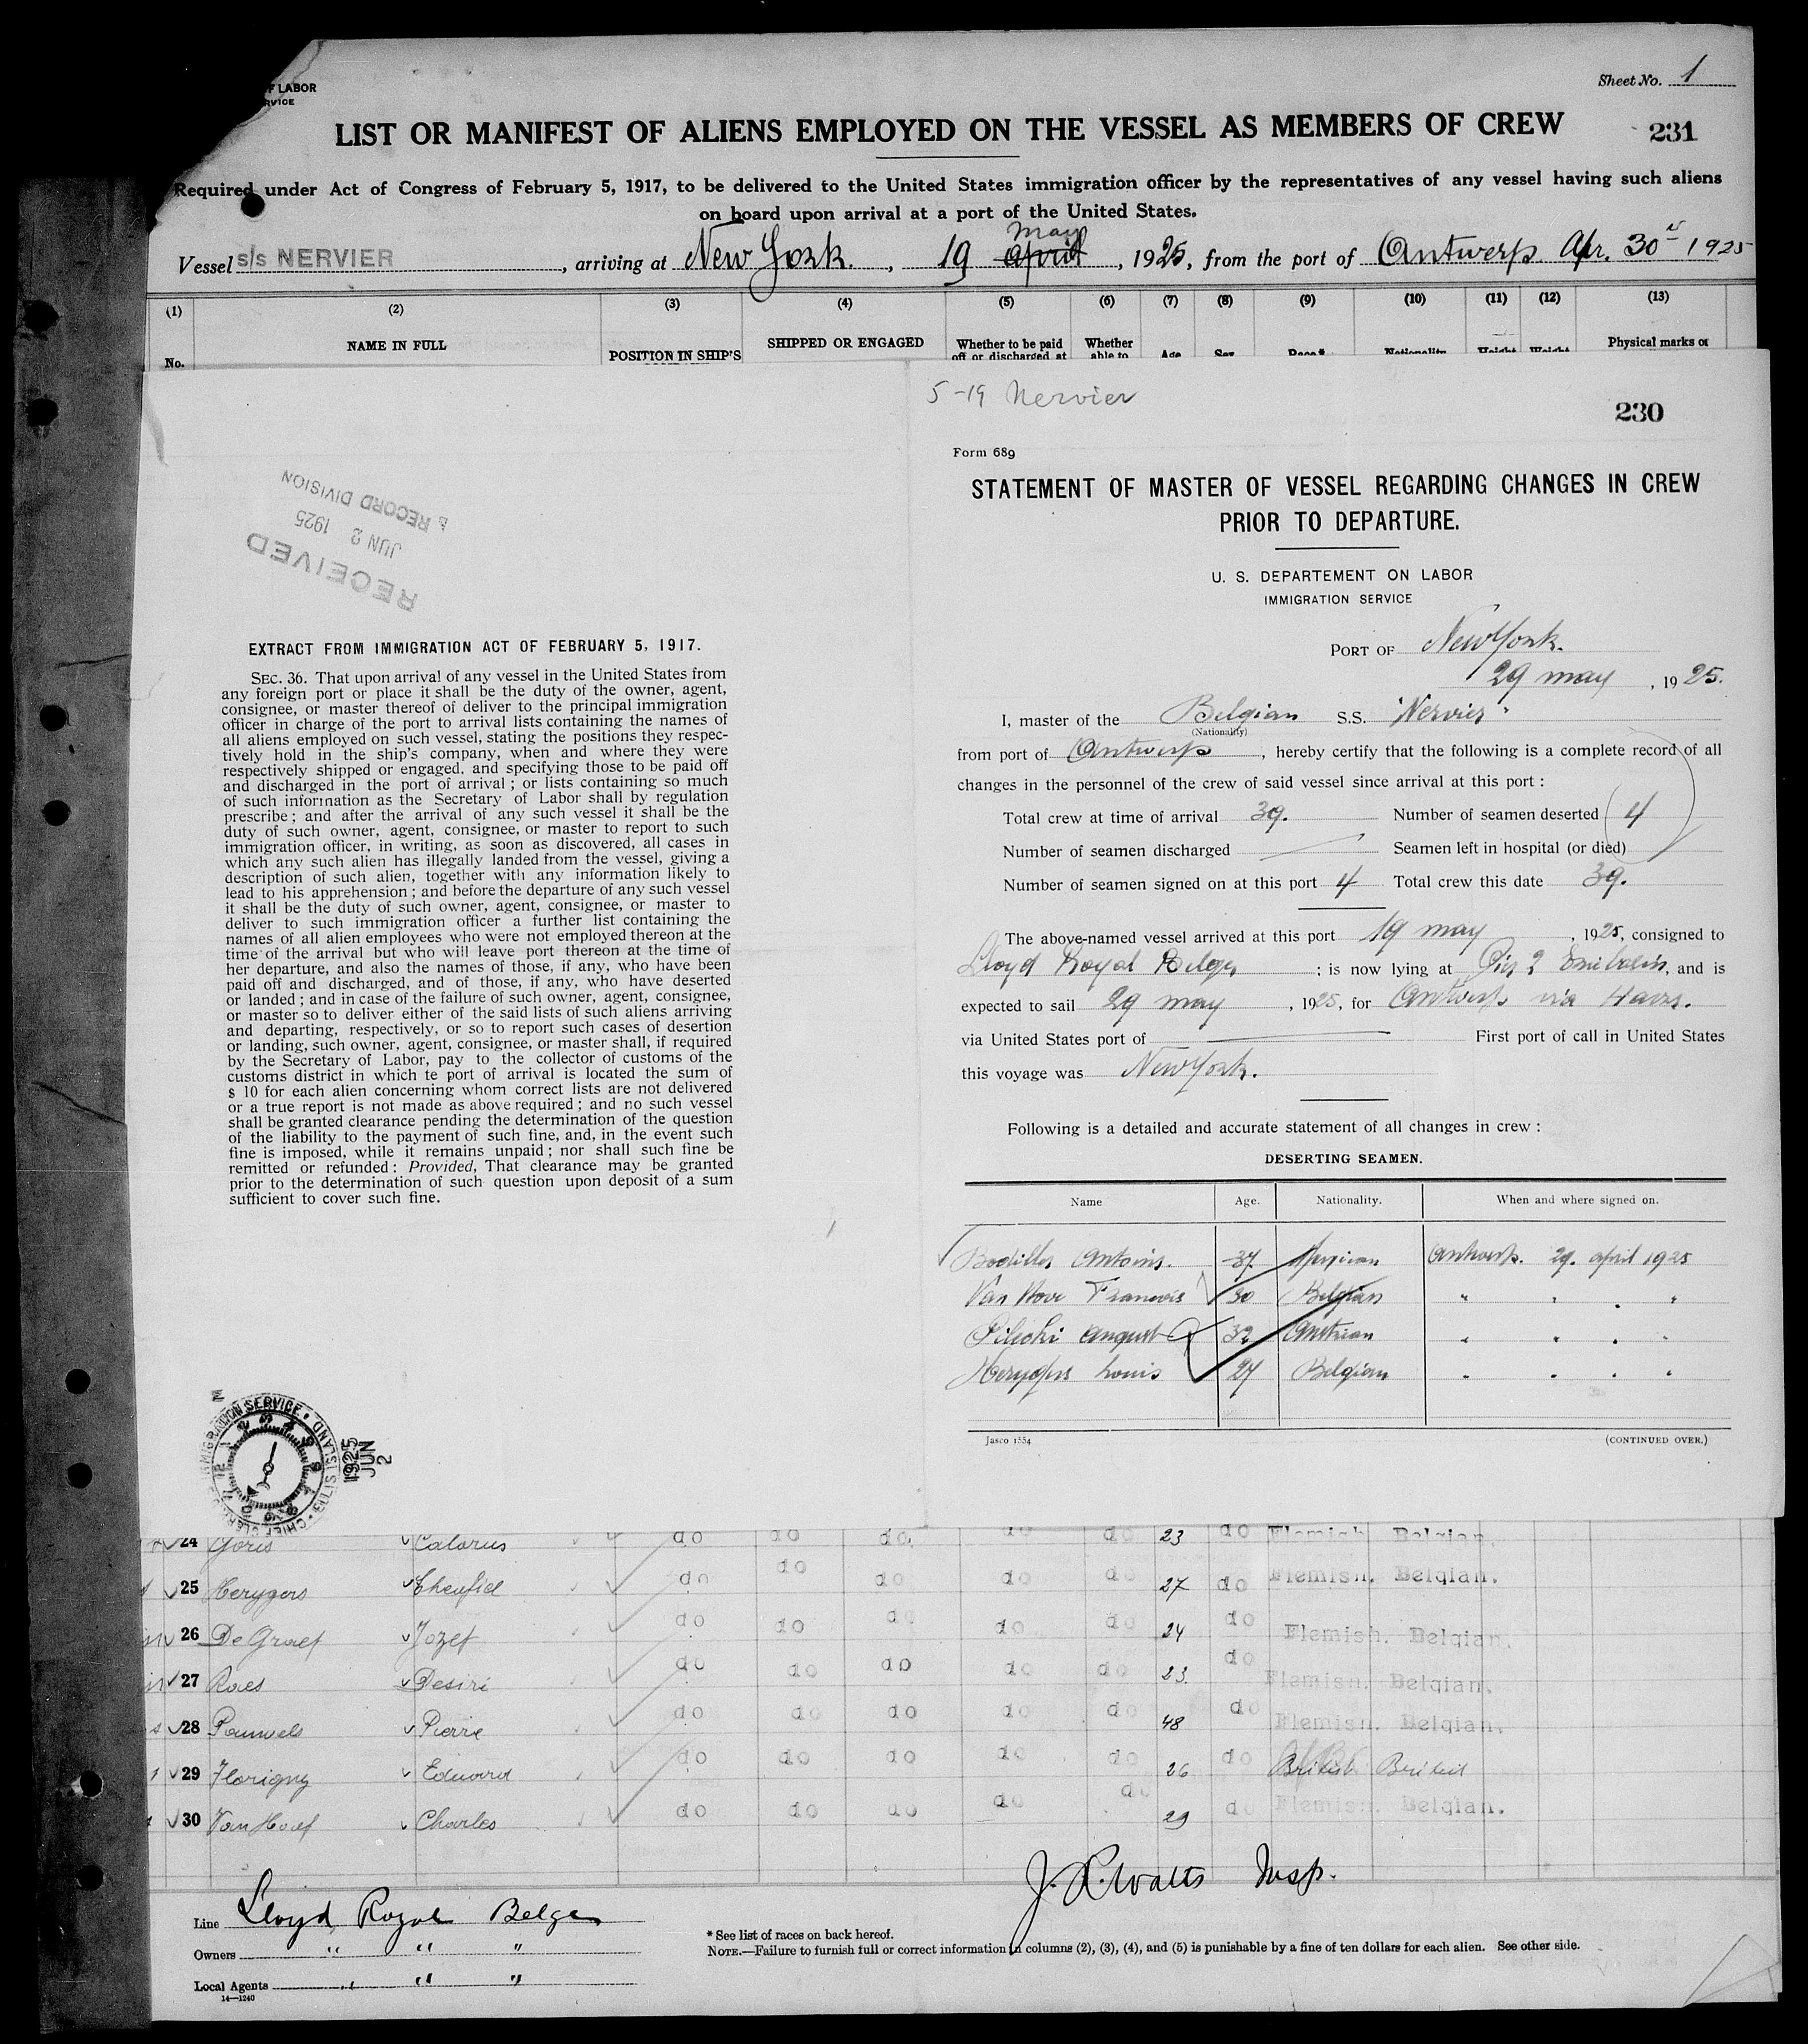 F LABOR
RVICE
Sheet No. 1
LIST OR MANIFEST OF ALIENS EMPLOYED ON THE VESSEL AS MEMBERS OF CREW
231
Required under Act of Congress of February 5, 1917, to be delivered to the United States immigration officer by the representatives of any vessel having such aliens
on board upon arrival at a port of the United States.
May
Vessel s/s NERVIER, arriving at New York., 19 april, 1925, from the port of Antwerp Apr. 30 1925
(1) (2) (3) (4) (5) (6) (7) (8) (9) (10) (11) (12) (13)
No. NAME IN FULL POSITION IN SHIP'S SHIPPED OR ENGAGED Whether to be paid off or discharged at Whether able to Age Sex Race* Nationality Height Weight Physical marks or
RECEIVED
JUN 2 1925
& RECORD DIVISION
EXTRACT FROM IMMIGRATION ACT OF FEBRUARY 5, 1917.
SEC. 36. That upon arrival of any vessel in the United States from
any foreign port or place it shall be the duty of the owner, agent,
consignee, or master thereof of deliver to the principal immigration
officer in charge of the port to arrival lists containing the names of
all aliens employed on such vessel, stating the positions they respec-
tively hold in the ship's company, when and where they were
respectively shipped or engaged, and specifying those to be paid off
and discharged in the port of arrival; or lists containing so much
of such information as the Secretary of Labor shall by regulation
prescribe; and after the arrival of any such vessel it shall be the
duty of such owner, agent, consignee, or master to report to such
immigration officer, in writing, as soon as discovered, all cases in
which any such alien has illegally landed from the vessel, giving a
description of such alien, together with any information likely to
lead to his apprehension; and before the departure of any such vessel
it shall be the duty of such owner, agent, consignee, or master to
deliver to such immigration officer a further list containing the
names of all alien employees who were not employed thereon at the
time of the arrival but who will leave port thereon at the time of
her departure, and also the names of those, if any, who have been
paid off and discharged, and of those, if any, who have deserted
or landed; and in case of the failure of such owner, agent, consignee,
or master so to deliver either of the said lists of such aliens arriving
and departing, respectively, or so to report such cases of desertion
or landing, such owner, agent, consignee, or master shall, if required
by the Secretary of Labor, pay to the collector of customs of the
customs district in which te port of arrival is located the sum of
$ 10 for each alien concerning whom correct lists are not delivered
or a true report is not made as above required; and no such vessel
shall be granted clearance pending the determination of the question
of the liability to the payment of such fine, and, in the event such
fine is imposed, while it remains unpaid; nor shall such fine be
remitted or refunded: Provided, That clearance may be granted
prior to the determination of such question upon deposit of a sum
sufficient to cover such fine.
IMMIGRATION SERVICE · ELLIS ISLAND · CHIEF CLERK
1925 JUN 2
5-19 Nervier
230
Form 689
STATEMENT OF MASTER OF VESSEL REGARDING CHANGES IN CREW
PRIOR TO DEPARTURE.
U. S. DEPARTEMENT ON LABOR
IMMIGRATION SERVICE
PORT OF New York.
29 may, 1925.
I, master of the Belgian S.S. "Nervier"
(Nationality)
from port of Antwerp, hereby certify that the following is a complete record of all
changes in the personnel of the crew of said vessel since arrival at this port:
Total crew at time of arrival 39. Number of seamen deserted 4
Number of seamen discharged Seamen left in hospital (or died)
Number of seamen signed on at this port 4 Total crew this date 39.
The above-named vessel arrived at this port 19 may, 1925, consigned to
Lloyd Royal Belge; is now lying at Pier 2, and is
expected to sail 29 may, 1925, for Antwerp via Havre.
via United States port of First port of call in United States
this voyage was New York.
Following is a detailed and accurate statement of all changes in crew:
DESERTING SEAMEN.
Name Age. Nationality. When and where signed on.
Antoine. 37 Mexican Antwerp. 29. april 1925
Van Hove Francois 30 Belgian " " . "
August 32 Austrian " " . "
Louis 27 Belgian " " . "
Jasco 1554 (CONTINUED OVER.)
24 Goris do do do. do do 23 do Flemish Belgian.
25 Herygers do do do do do 27 do Flemish. Belgian.
26 De Graef Jozef do do do do do 24 do Flemish. Belgian.
27 Raes Desiri do do do do do 23. do Flemish. Belgian.
28 Pauwels Pierre do do do do do 48 do Flemish. Belgian.
29 Florigny Edward do do do do do 26 do British British
30 Van Hoef Charles do do do do do 29 do Flemish Belgian.
J. R. Watts Insp.
Line Lloyd Royal Belge
Owners " " "
Local Agents " " "
14—1240
* See list of races on back hereof.
NOTE.—Failure to furnish full or correct information in columns (2), (3), (4), and (5) is punishable by a fine of ten dollars for each alien. See other side.